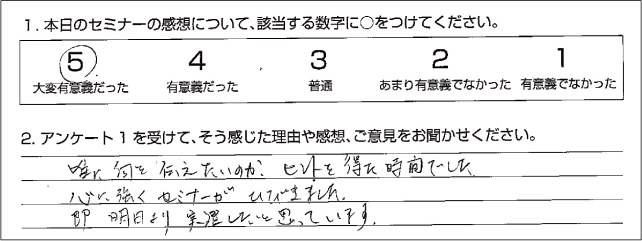 1. 本日のセミナーの感想について、該当する数字に○をつけてください。
5 4 3 2 1
大変有意義だった 有意義だった 普通 あまり有意義でなかった 有意義でなかった
2. アンケート1を受けて、そう感じた理由や感想、ご意見をお聞かせください。
唯に何を伝えたいのか。ヒントを得た時間でした
心に強くセミナーがひびきました。
即 明日より実選したいと思っています。